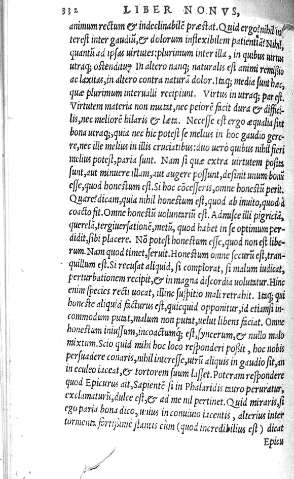 332 LIBER NONVS,
animum rectum & indeclinabilē præstat. Quid ergo? nihil in
terest inter gaudiū, & dolorum inflexibilem patientiā? Nihil,
quantū ad ipsas virtutes: plurimum inter illa, in quibus virtus
utraq; ostenditur. In altero nanq; naturalis est animi remissio
ac laxitas, in altero contra naturā dolor. Itaq; media sunt hæc,
quæ plurimum interualli recipiunt. Virtus in utraq; par est.
Virtutem materia non mutat, nec peiorē facit dura & diffici-
lis, nec meliorē hilaris & læta. Necesse est ergo æqualia sint
bona utraq; quia nec hic potest se melius in hoc gaudio gere-
re, nec ille melius in illis cruciatibus: duo uero quibus nihil fieri
melius potest, paria sunt. Nam si quæ extra virtutem posita
sunt, aut minuere illam, aut augere possunt, desinit unum bonū
esse, quod honestum est. Si hoc cōcesseris, omne honestū perit.
Quare? dicam, quia nihil honestum est, quod ab inuito, quod à
coacto fit. Omne honestū voluntariū est. Admisce illi pigriciā,
querelā, tergiuersationē, metū, quod habet in se optimum per-
didit, sibi placere. Nō potest honestum esse, quod non est libe-
rum. Nam quod timet, seruit. Honestum omne securū est, tran-
quillum est. Si recusat aliquid, si complorat, si malum iudicat,
perturbationem recipit, & in magna discordia voluitur. Hinc
enim species recti uocat, illinc suspitio mali retrahit. Itaq; qui
honeste aliquid facturus est, quicquid opponitur, id etiamsi in-
commodum putat, malum non putat, uelit libens faciat. Omne
honestum iniussum, incoactumq; est, syncerum, & nullo malo
mixtum. Scio quid mihi hoc loco responderi possit, hoc nobis
persuadere conaris, nihil interesse, utrū aliquis in gaudio sit, an
in eculeo iaceat, & tortorem suum lasset. Poteram respondere
quod Epicurus ait, Sapientē si in Phalaridis tauro peruratur,
exclamaturū, dulce est, & ad me nil pertinet. Quid miraris, si
ego paria bona dico, unius in conuiuio iacentis, alterius inter
tormenta fortissime stantis cum (quod incredibilius est) dicat
Epicu